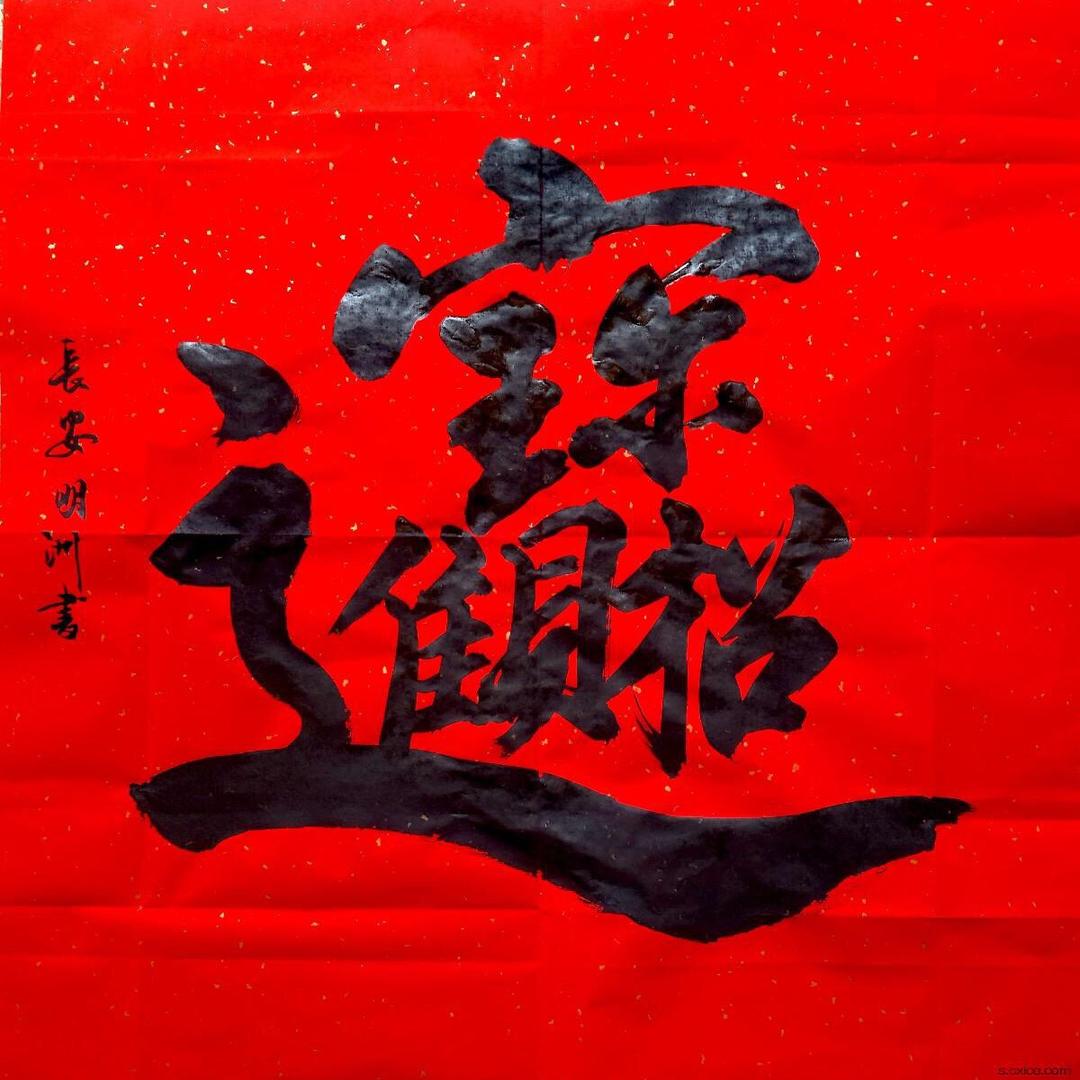 招財進寶
長安明洲書
s.oxice.com